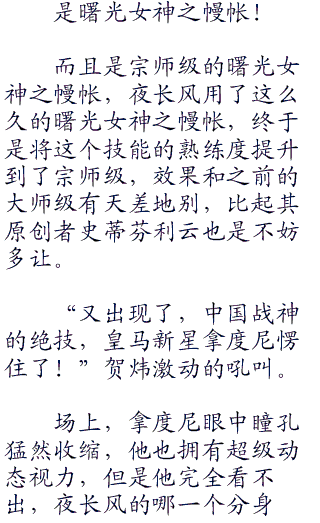 是曙光女神之幔帐！
而且是宗师级的曙光女
神之幔帐，夜长风用了这么
久的曙光女神之幔帐，终于
是将这个技能的熟练度提升
到了宗师级，效果和之前的
大师级有天差地别，比起其
原创者史蒂芬利云也是不妨
多让。
“又出现了，中国战神
的绝技，皇马新星拿度尼愣
住了！”贺炜激动的吼叫。
场上，拿度尼眼中瞳孔
猛然收缩，他也拥有超级动
态视力，但是他完全看不
出，夜长风的哪一个分身